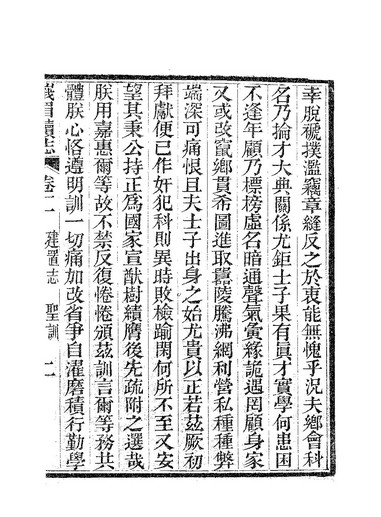 幸脫褫撲濫竊章縫反之於衷能無愧乎況夫鄉會科
名乃掄才大典關係尤鉅士子果有眞才實學何患困
不逢年顧乃標榜虛名暗通聲氣夤緣詭遇罔顧身家
又或改竄鄉貫希圖進取囂陵騰沸網利營私種種弊
端深可痛恨且夫士子出身之始尤貴以正若茲厥初
拜獻便已作奸犯科則異時敗檢踰閑何所不至又安
望其秉公持正爲國家宣猷樹績膺後先疏附之選哉
朕用嘉惠爾等故不禁反復惓惓頒茲訓言爾等務共
體朕心恪遵明訓一切痛加改省爭自濯磨積行勤學
峨眉縣續志 卷二 建置志 聖訓 二